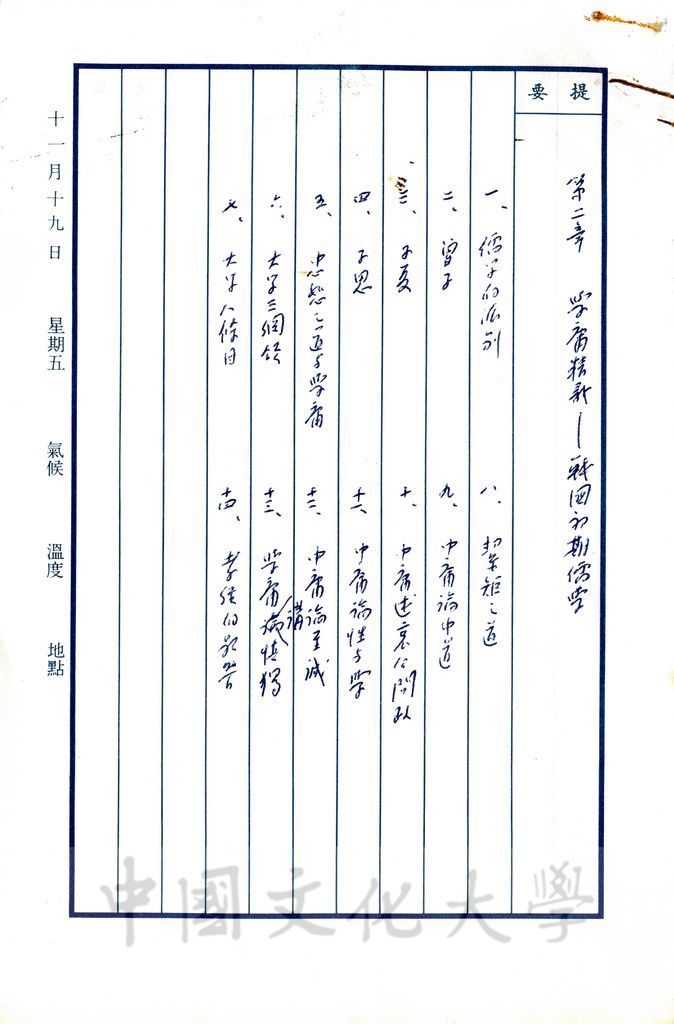 提要
第二章 學庸精神—戰國初期儒學
一、儒學的派別
八、絜矩之道
二、曾子
九、中庸論中道
三、子夏
十、中庸述哀公問政
四、子思
十一、中庸論性与學
五、忠恕之道与學庸
十二、中庸論至誠
六、大學三綱領
十三、學庸講慎獨
七、大學八條目
十四、孝經的影響
十一月十九日 星期五 氣候 溫度 地點
中國文化大學